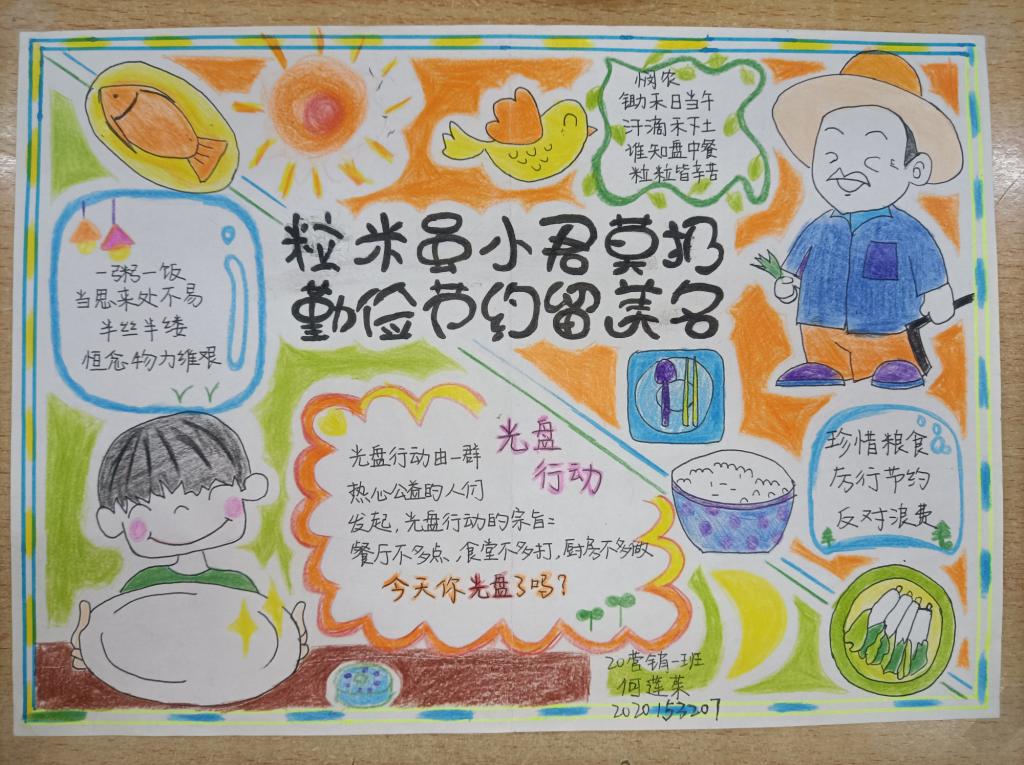 悯农
锄禾日当午
汗滴禾下土
谁知盘中餐
粒粒皆辛苦
粒米虽小君莫扔
勤俭节约留美名
一粥一饭
当思来处不易
半丝半缕
恒念物力维艰
光盘
行动
光盘行动由一群
热心公益的人们
发起,光盘行动的宗旨:
餐厅不多点、食堂不多打,厨房不多做
今天你光盘了吗?
珍惜粮食
厉行节约
反对浪费
20营销一班
何莲茱
2020153207